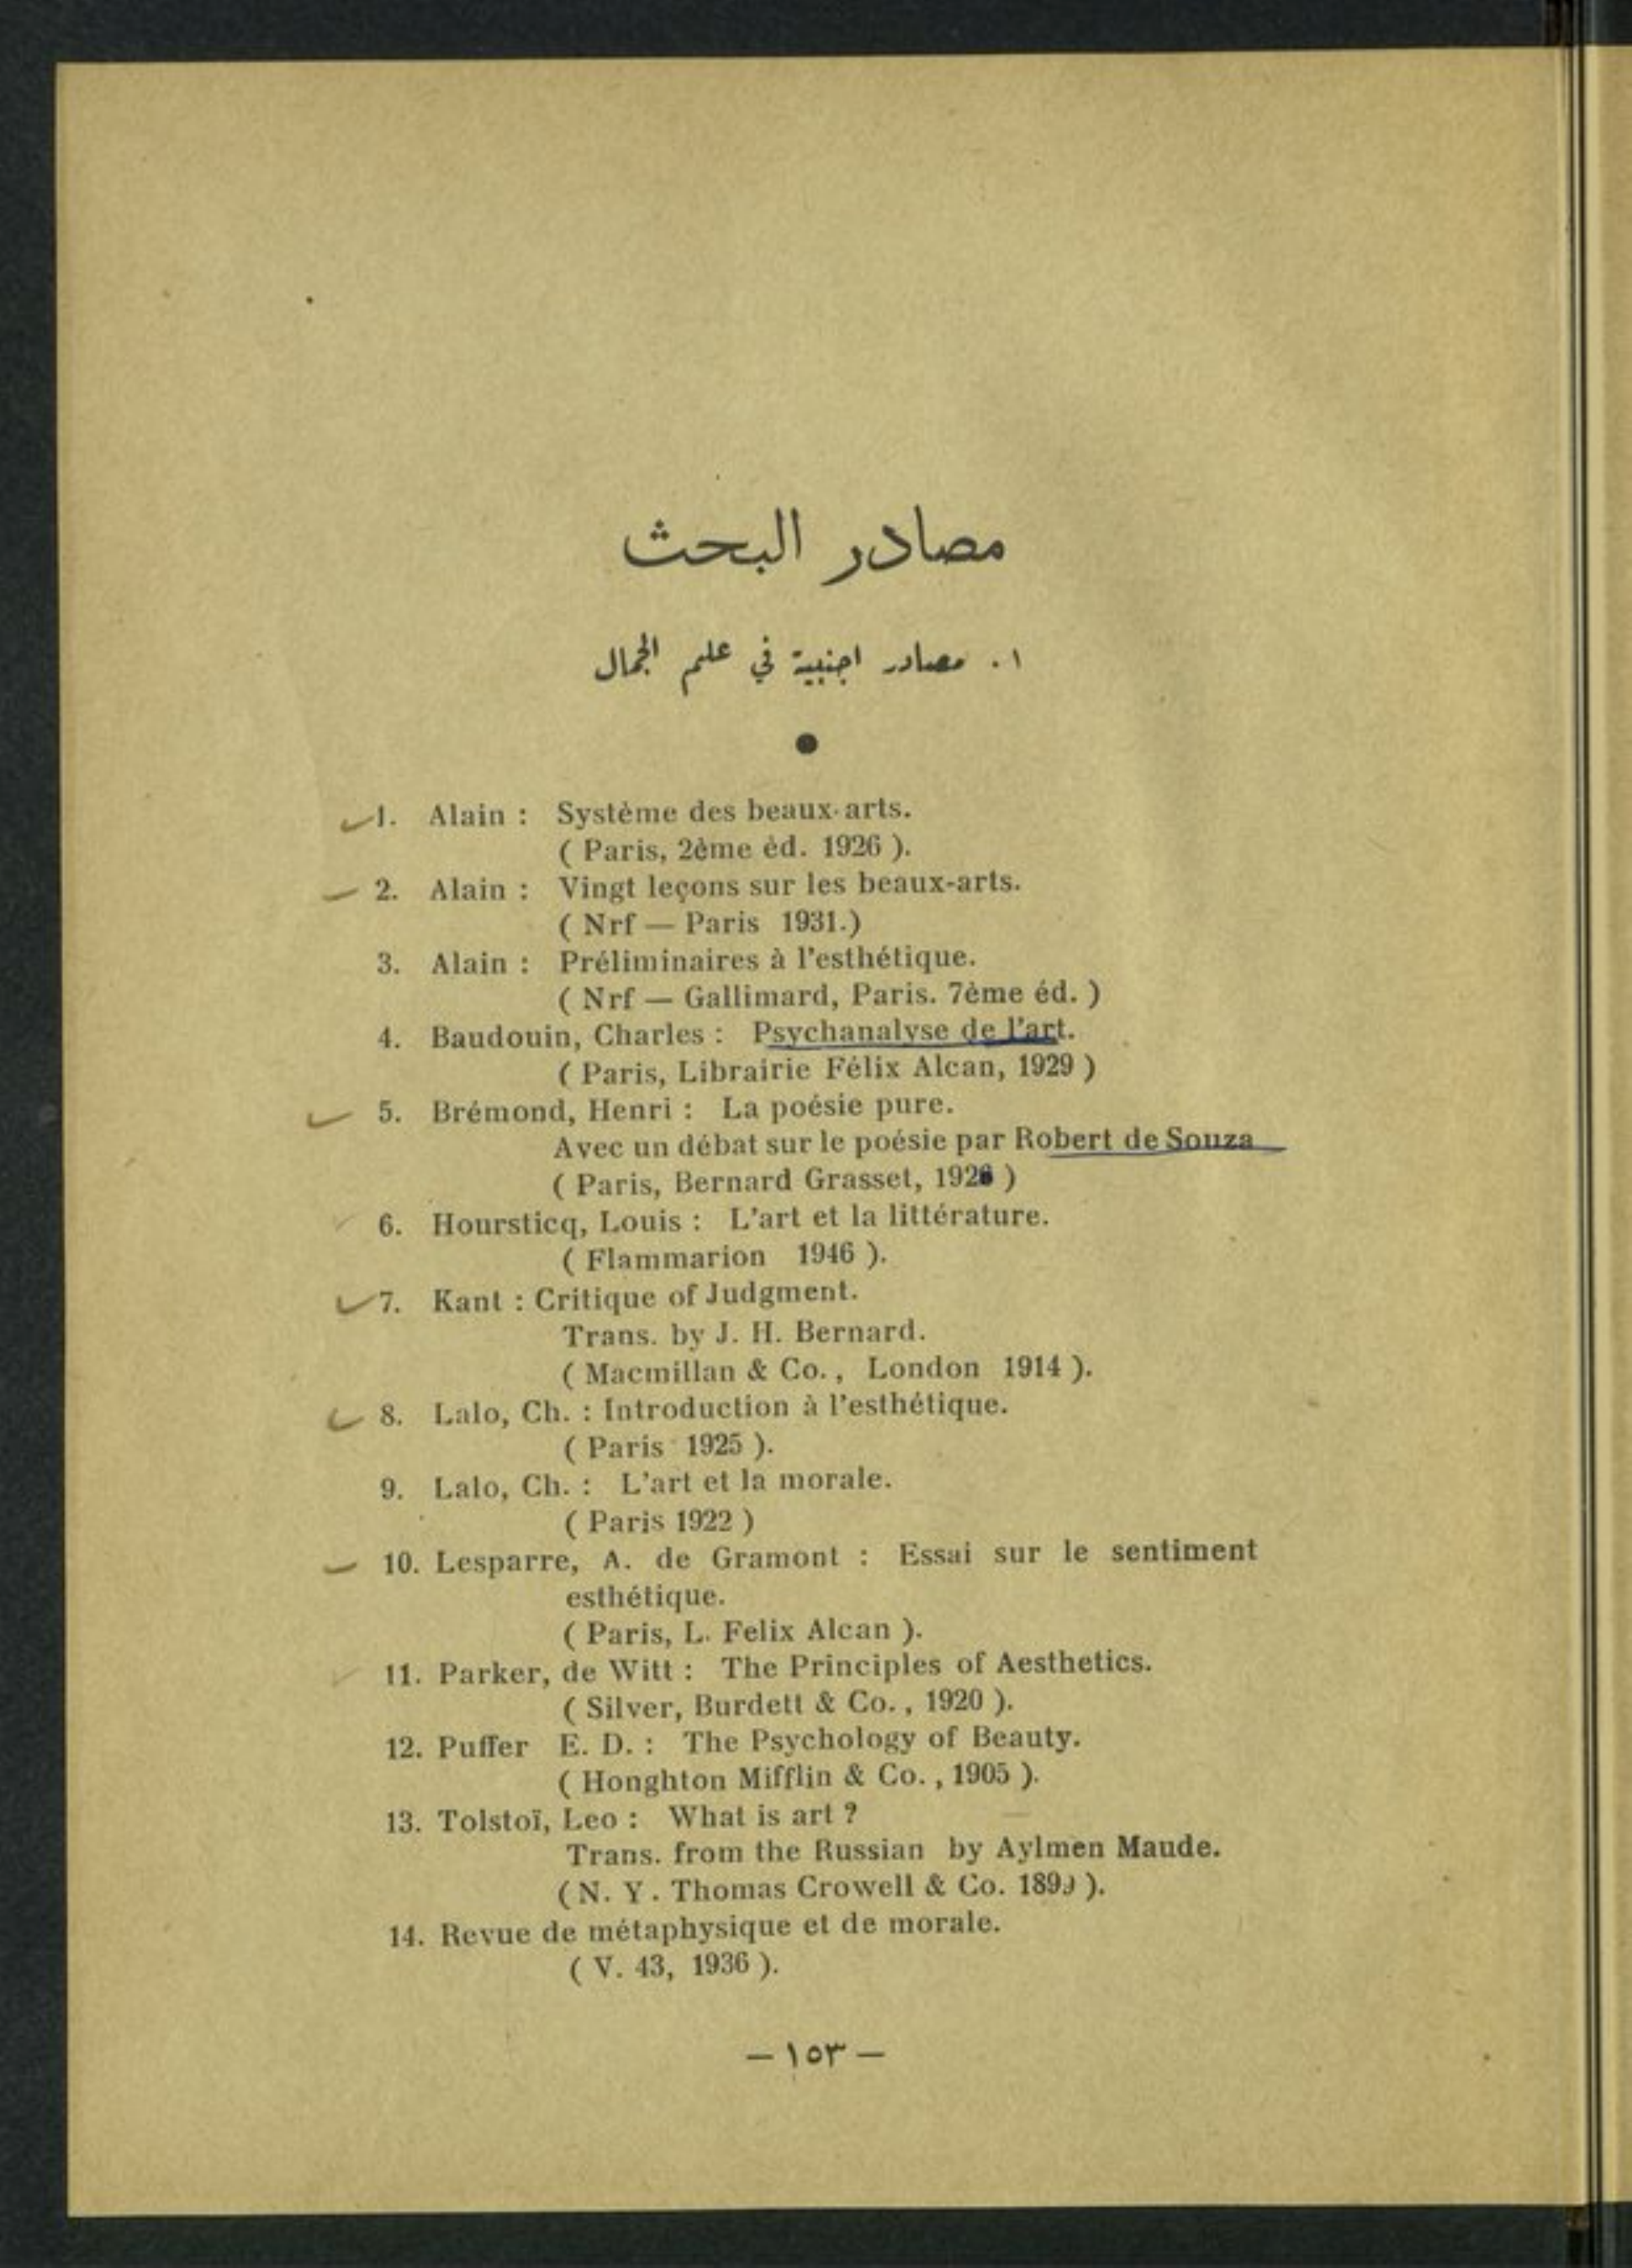 مصادر البحث
١. مصادر اجنبية في علم الجمال
1. Alain : Système des beaux-arts.
( Paris, 2ème èd. 1926 ).
2. Alain : Vingt leçons sur les beaux-arts.
( Nrf — Paris 1931.)
3. Alain : Préliminaires à l'esthétique.
( Nrf — Gallimard, Paris. 7ème éd. )
4. Baudouin, Charles : Psychanalyse de l'art.
( Paris, Librairie Félix Alcan, 1929 )
5. Brémond, Henri : La poésie pure.
Avec un débat sur le poésie par Robert de Souza
( Paris, Bernard Grasset, 1926 )
6. Hoursticq, Louis : L'art et la littérature.
( Flammarion 1946 ).
7. Kant : Critique of Judgment.
Trans. by J. H. Bernard.
( Macmillan & Co., London 1914 ).
8. Lalo, Ch. : Introduction à l'esthétique.
( Paris 1925 ).
9. Lalo, Ch. : L'art et la morale.
( Paris 1922 )
10. Lesparre, A. de Gramont : Essai sur le sentiment
esthétique.
( Paris, L. Felix Alcan ).
11. Parker, de Witt : The Principles of Aesthetics.
( Silver, Burdett & Co., 1920 ).
12. Puffer E. D. : The Psychology of Beauty.
( Honghton Mifflin & Co., 1905 ).
13. Tolstoï, Leo : What is art ?
Trans. from the Russian by Aylmen Maude.
( N. Y. Thomas Crowell & Co. 1899 ).
14. Revue de métaphysique et de morale.
( V. 43, 1936 ).
— ١٥٣ —